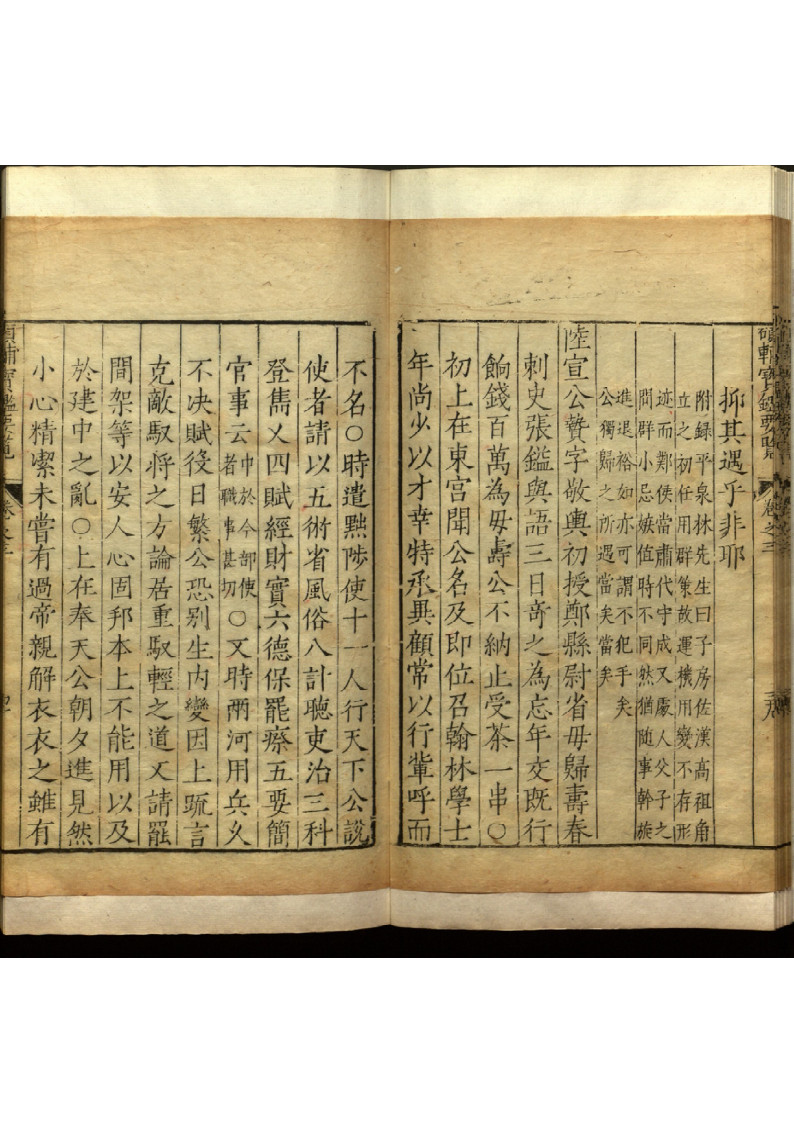 抑其遇乎非耶
附録平泉林先生曰子房佐漢高祖角
立之初任用群策故運機用變不存形
迹而鄴侯當肅代守成又處人父子之
間群小忌嫉值時不同然猶随事幹旋
進退裕如亦可謂不犯手矣
公獨歸之所遇當矣當矣
陸宣公贄字敬輿初授鄭縣尉省母歸壽春
刺史張鎰與語三日竒之為忘年交既行
餉錢百萬為母壽公不納止受茶一串○
初上在東宫聞公名及即位召翰林學士
年尚少以才幸特承異顧常以行輩呼而
不名○時遣黜陟使十一人行天下公説
使者請以五術省風俗八計聴吏治三科
登雋乂四賦經財實六德保罷瘵五要簡
官事云中於今部使者職事甚切○又時兩河用兵久
不决賦役日繁公恐别生内變因上疏言
克敵馭将之方論居重馭輕之道又請罷
間架等以安人心固邦本上不能用以及
於建中之亂○上在奉天公朝夕進見然
小心精潔未嘗有過帝親解衣衣之雖有